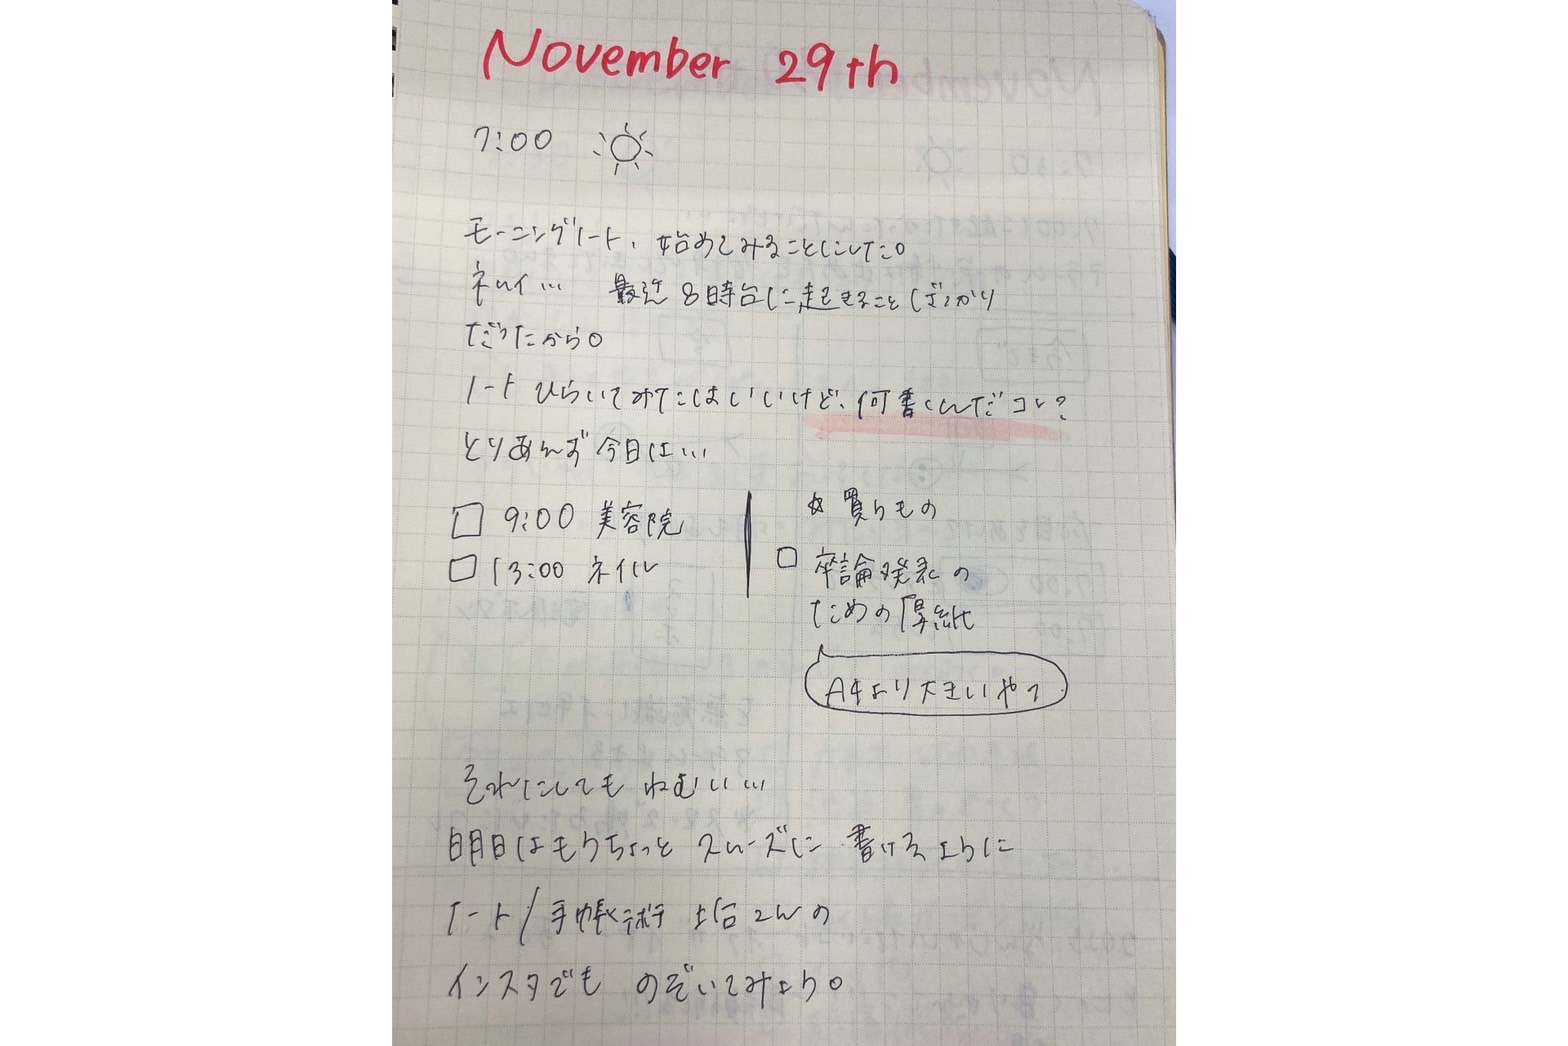 November 29th
7:00
モーニングノート、始めてみることにした。
ネムイ… 最近8時台に起きることばっかり
だったから。
ノートひらいてみたはいいけど、何書くんだコレ?
とりあえず今日は…
□ 9:00 美容院
□ 13:00 ネイル
☆ 買うもの
□ 卒論発表の
ための厚紙
A4より大きいやつ
それにしてもねむい…
明日はもうちょっとスムーズに書けるように
ノート/手帳デポデ
インスタでものぞいてみよう。